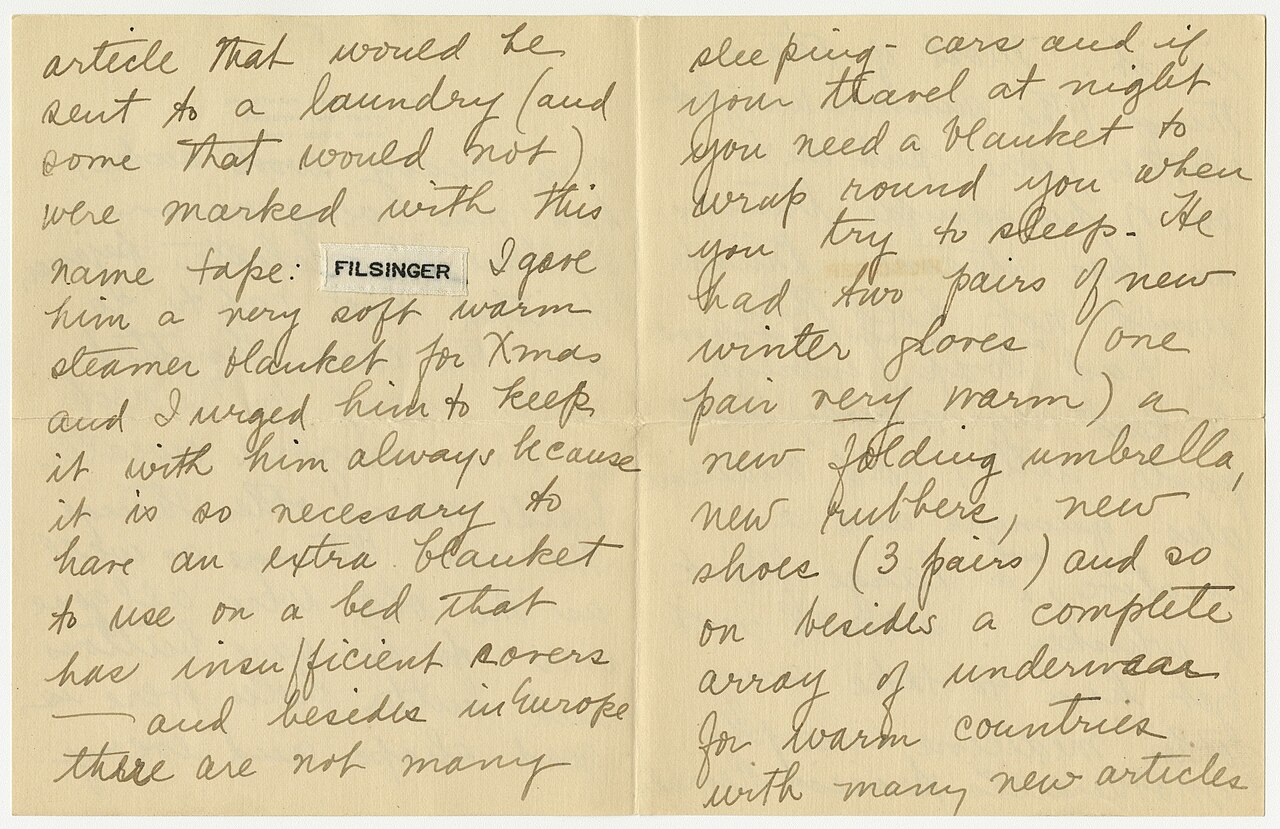 article that would be
sent to a laundry (and
some that would not)
were marked with this
name tape: FILSINGER I gave
him a very soft warm
steamer blanket for Xmas
and I urged him to keep
it with him always because
it is so necessary to
have an extra blanket
to use on a bed that
has insufficient covers
— and besides in Europe
there are not many
sleeping-cars and if
your travel at night
you need a blanket to
wrap round you when
you try to sleep. He
had two pairs of new
winter gloves (one
pair very warm) a
new folding umbrella,
new rubbers, new
shoes (3 pairs) and so
on besides a complete
array of underwear
for warm countries
with many new articles